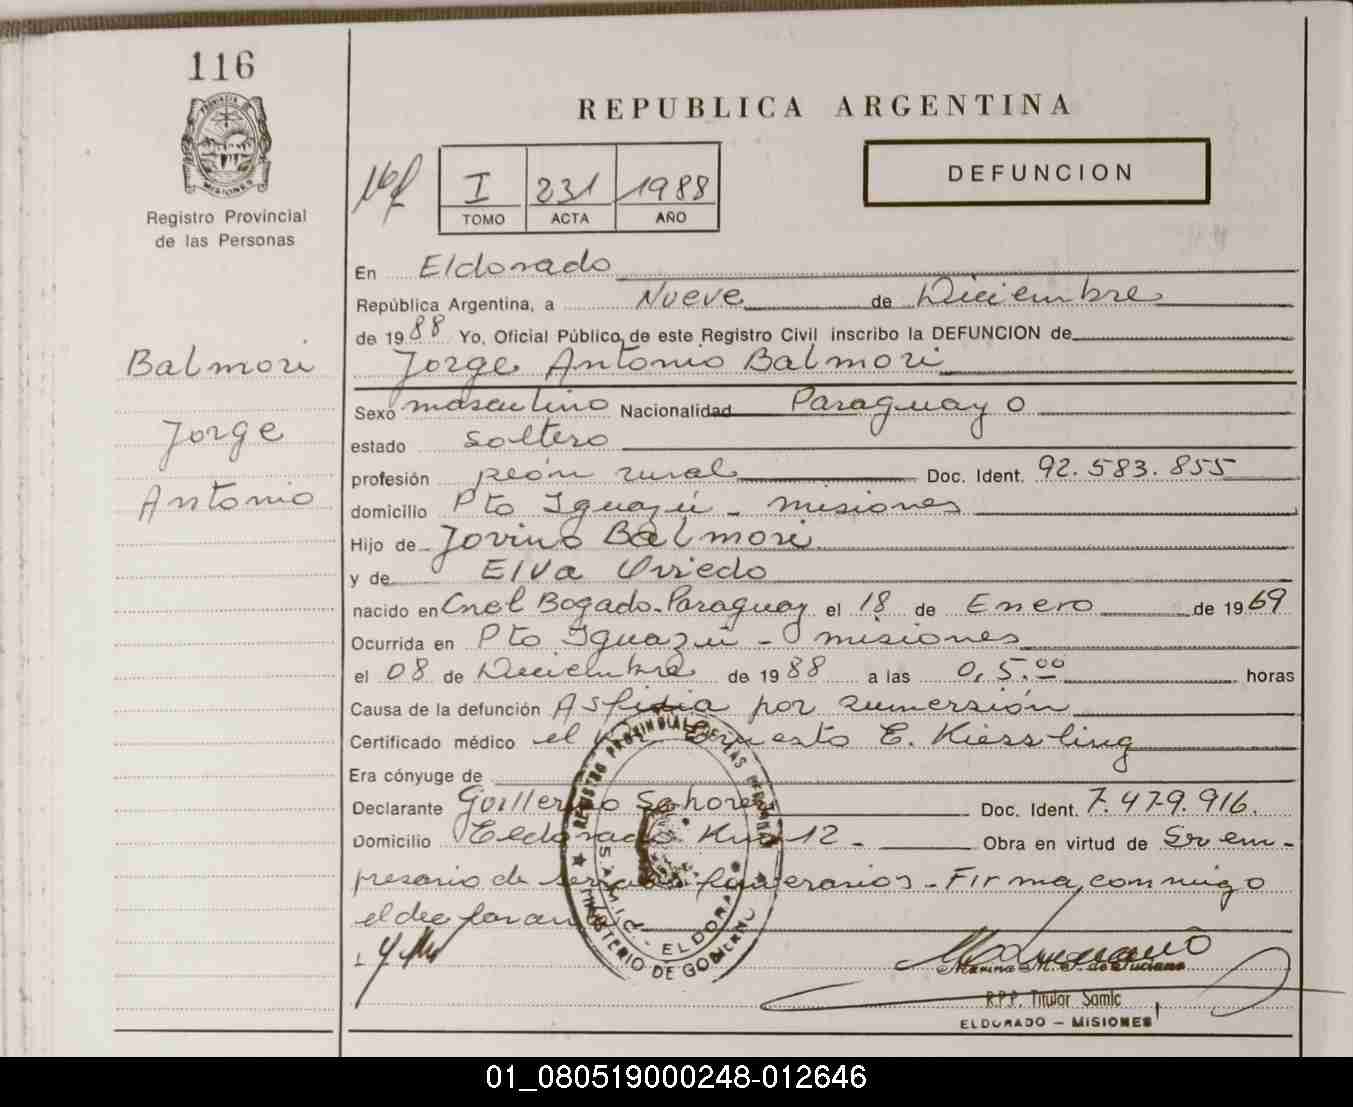 116
PROVINCIA DE
MISIONES
Registro Provincial
de las Personas
Balmori
Jorge
Antonio
REPUBLICA ARGENTINA
DEFUNCION
I 231 1988
TOMO ACTA AÑO
En Eldorado
República Argentina, a Nueve de Diciembre
de 1988 Yo, Oficial Público de este Registro Civil inscribo la DEFUNCION de
Jorge Antonio Balmori
Sexo masculino Nacionalidad Paraguayo
estado soltero
profesión peón rural Doc. Ident. 92.583.855
domicilio Pto Iguazú - misiones
Hijo de Jovino Balmori
y de Elva Oviedo
nacido en Cnel Bogado-Paraguay el 18 de Enero de 1969
Ocurrida en Pto Iguazú - misiones
el 08 de Diciembre de 1988 a las 0,5.00 horas
Causa de la defunción Asfixia por sumersión
Certificado médico el Ernesto E. Kiessling
Era cónyuge de
Declarante Guillermo Sahores Doc. Ident. 7.479.916.
Domicilio Eldorado Km 12 - Obra en virtud de Ser em-
presario de servicios funerarios - Firma, conmigo
el declarante
REGISTRO PROVINCIAL DE LAS PERSONAS
MINISTERIO DE GOBIERNO
S.A.M.I.C. - ELDORADO
Marina M. F. de Luciano
R.P.P. Titular Samic
ELDORADO - MISIONES
01_080519000248-012646